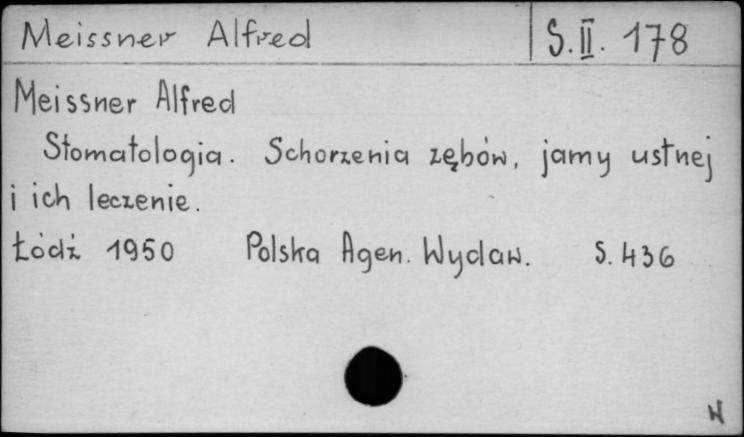 Meissner Alfred S.II. 178
Meissner Alfred
Stomatologia. Schorzenia zębów, jamy ustnej
i ich leczenie.
Łódź 1950 Polska Agen. Wydaw. S. 436
N